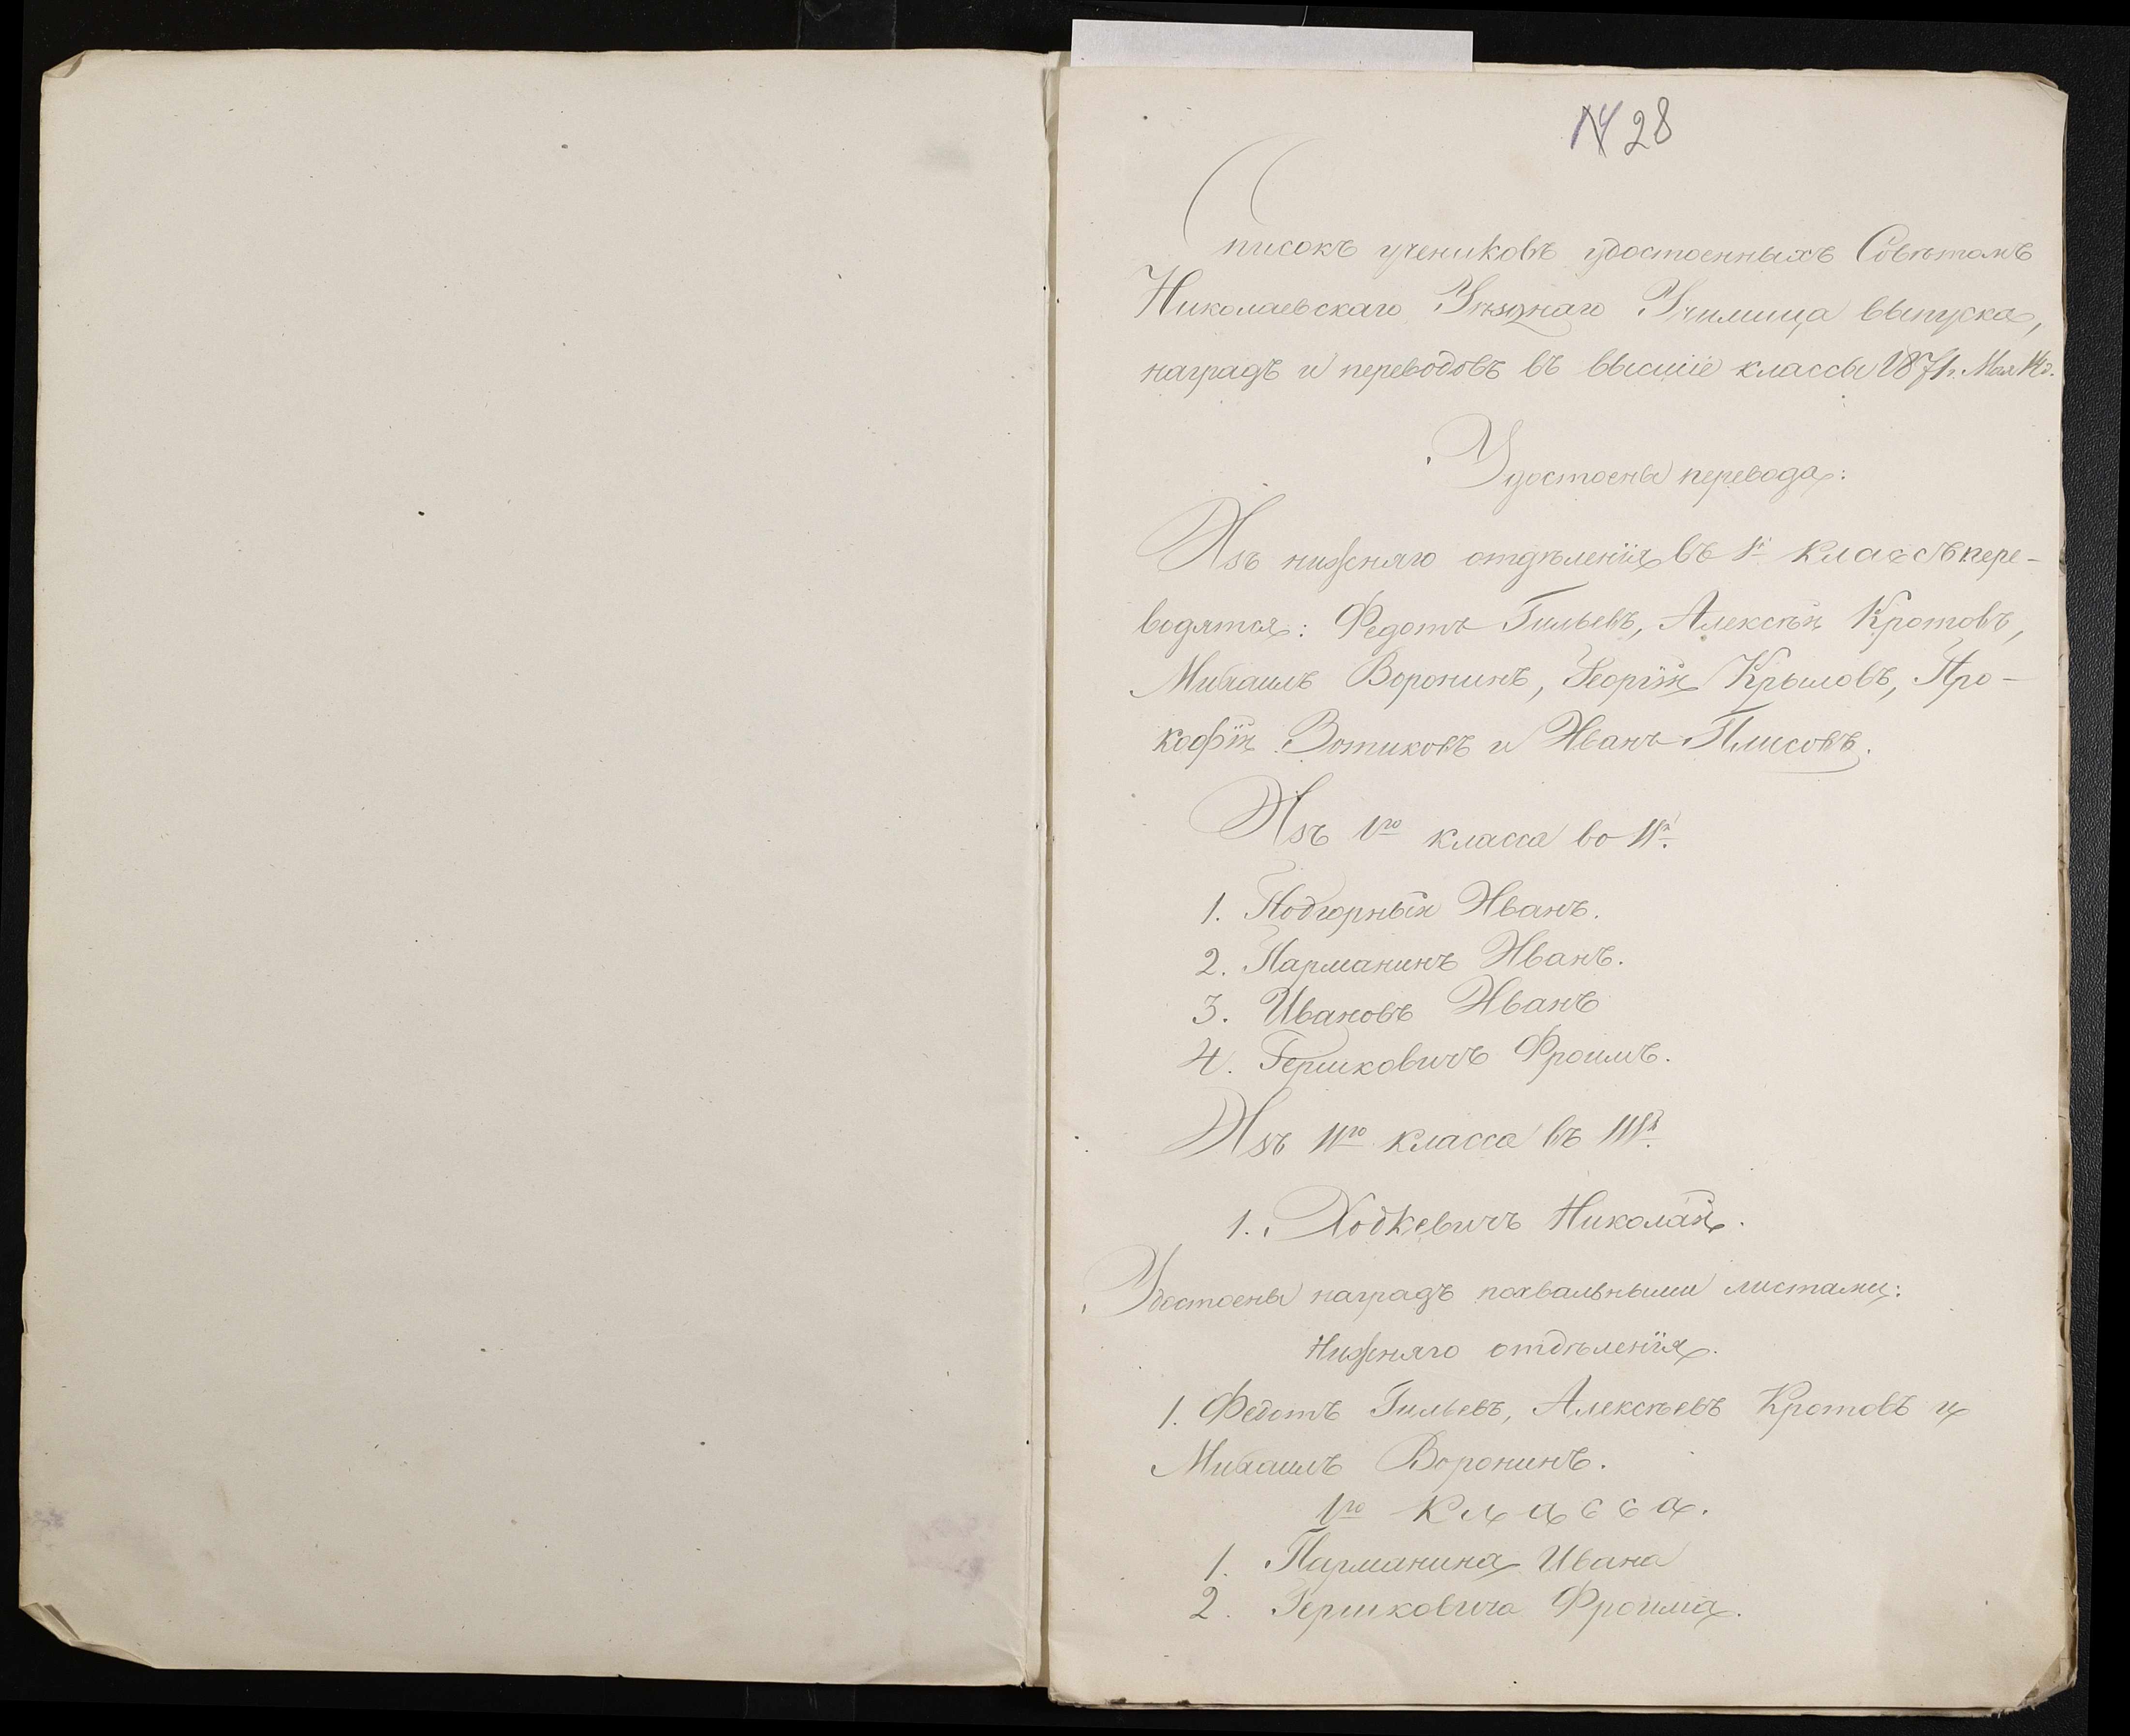 14 28
Списокъ учениковъ удостоенныхъ Совѣтомъ
Николаевскаго Уѣзднаго Училища выпуска,
наградъ и переводовъ въ высшіе классы 1871г. Мая 14д.
Удостоены перевода:
Изъ нижняго отдѣленія въ Iй классъ пере-
водятся: Федотъ Гильевъ, Алексѣй Кротовъ,
Михаилъ Воронинъ, Георгій Крыловъ, Про-
кофій Зотиковъ и Иванъ Плисовъ.
Изъ Iго класса во IIй.
1. Подгорный Иванъ.
2. Парманинъ Иванъ.
3. Ивановъ Иванъ
4. Гершковичъ Фроимъ.
Изъ IIго класса въ IIIй.
1. Ходкевичъ Николай.
Удостоены наградъ похвальными листами:
Нижняго отдѣленія.
1. Федотъ Гильевъ, Алексѣевъ Кротовъ и
Михаилъ Воронинъ.
Iго класса.
1. Парманина Ивана
2. Гершковича Фроима.